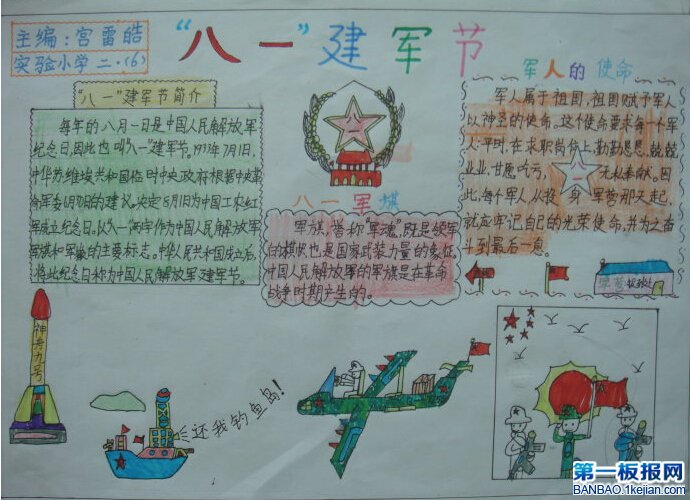 主编：宫雷皓
实验小学 二·（6）
“八一”建军节
“八一”建军节简介
每年的八月一日是中国人民解放军
纪念日，因此也叫“八一”建军节。1933年7月1日，
中华苏维埃共和国临时中央政府根据中央革
命军委6月30日的建议，决定8月1日为中国工农红
军成立纪念日。以“八一”两字作为中国人民解放军
军旗和军徽的主要标志。中华人民共和国成立后，
将此纪念日称为中国人民解放军建军节。
八一军旗
军旗，誉称“军魂”，既是领军
的旗帜也是国家武装力量的象征。
中国人民解放军的军旗是在革命
战争时期产生的。
军人的使命
军人属于祖国，祖国赋予军人
以神圣的使命。这个使命要求每个军
人平时，在求职岗位上勤勤恳恳，兢兢
业业，甘愿吃亏，八一无私奉献。因
此，每个军人，从投身军营那天起，
就应牢记自己的光荣使命，并为之奋
斗到最后一息。
神舟九号
还我钓鱼岛！
第一板报网
BANBAO.1kejian.com